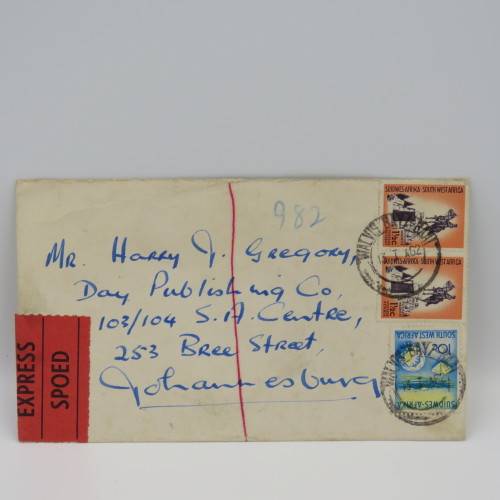 982
Mr. Harry J. Gregory,
Day Publishing Co,
103/104 S.A. Centre,
253 Bree Street,
Johannesburg
EXPRESS
SPOED
SUIDWES-AFRIKA · SOUTH WEST AFRICA
1½c
SUIDWES-AFRIKA · SOUTH WEST AFRICA
1½c
SOUTH WEST AFRICA
10c
SUIDWES-AFRIKA
WALVIS BAY
WALVIS BAY